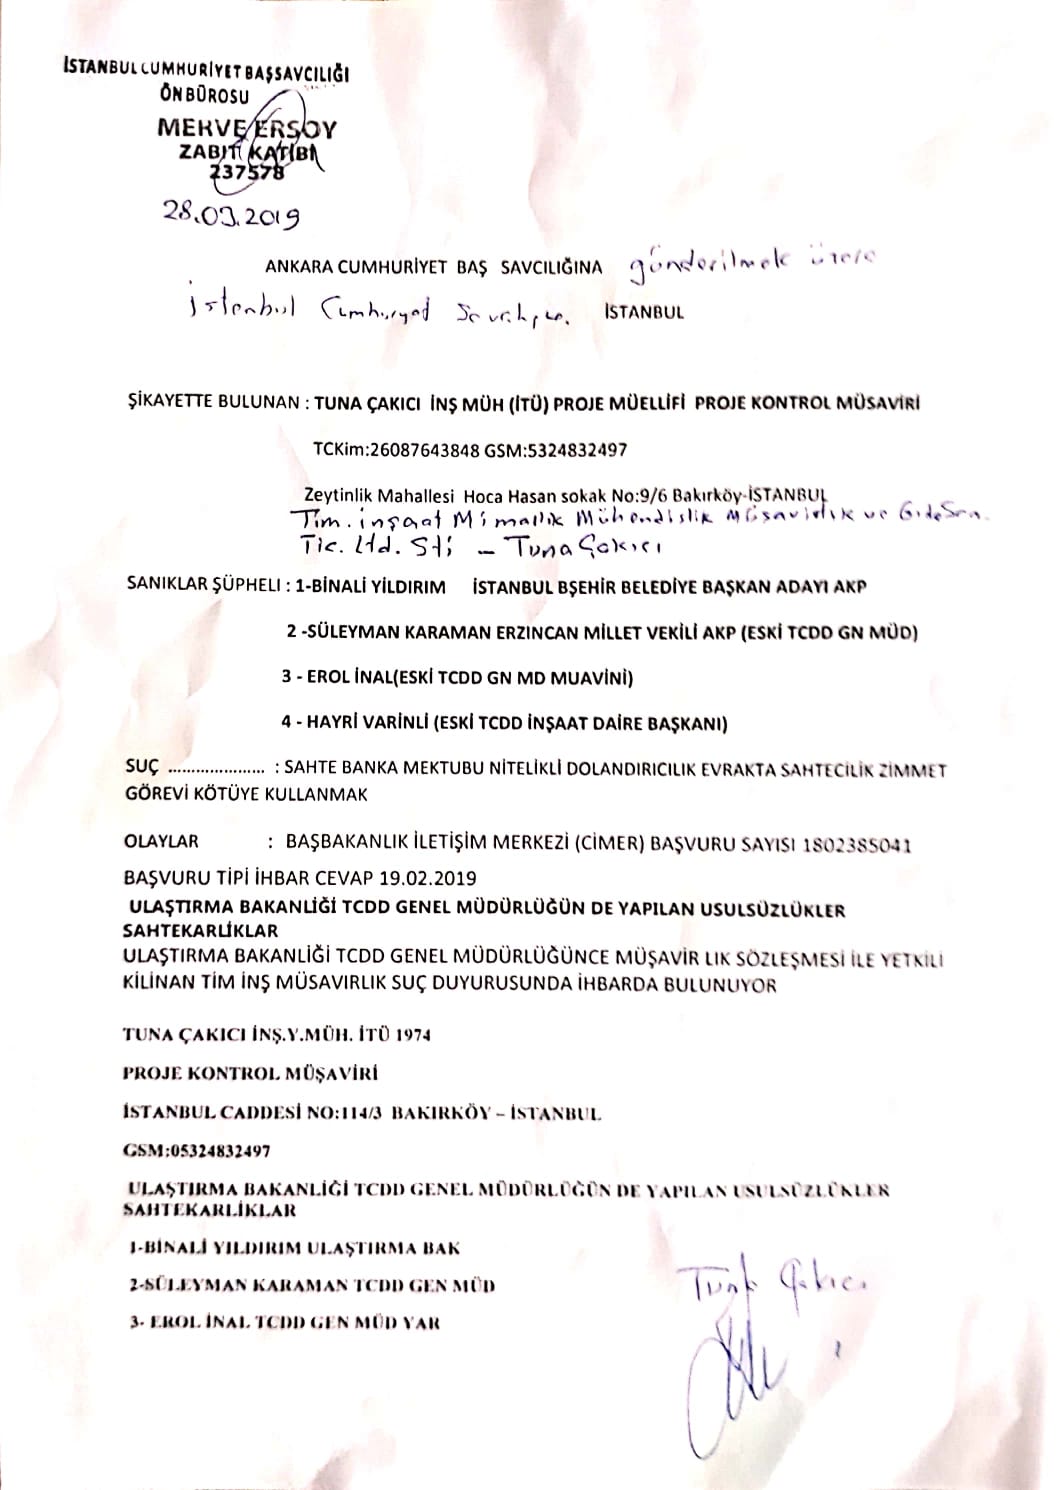 İSTANBUL CUMHURİYET BAŞSAVCILIĞI
ÖN BÜROSU
MERVE ERSOY
ZABIT KATİBİ
237578
28.03.2019
ANKARA CUMHURİYET BAŞ SAVCILIĞINA gönderilmek üzere
İstanbul Cumhuriyet İSTANBUL
ŞİKAYETTE BULUNAN : TUNA ÇAKICI İNŞ MÜH (İTÜ) PROJE MÜELLİFİ PROJE KONTROL MÜSAVİRİ
TCKim:26087643848 GSM:5324832497
Zeytinlik Mahallesi Hoca Hasan sokak No:9/6 Bakırköy-İSTANBUL
Tim. inşaat Mimarlık Mühendislik Müşavirlik ve Gıda San.
Tic. Ltd. Sti - Tuna Çakıcı
SANIKLAR ŞÜPHELİ : 1-BİNALİ YİLDIRIM İSTANBUL BŞEHİR BELEDİYE BAŞKAN ADAYI AKP
2 -SÜLEYMAN KARAMAN ERZINCAN MİLLET VEKİLİ AKP (ESKİ TCDD GN MÜD)
3 - EROL İNAL(ESKİ TCDD GN MD MUAVİNİ)
4 - HAYRİ VARİNLİ (ESKİ TCDD İNŞAAT DAİRE BAŞKANI)
SUÇ ..................... : SAHTE BANKA MEKTUBU NİTELİKLİ DOLANDIRICILIK EVRAKTA SAHTECİLİK ZİMMET
GÖREVİ KÖTÜYE KULLANMAK
OLAYLAR : BAŞBAKANLIK İLETİŞİM MERKEZİ (CİMER) BAŞVURU SAYISI 1802385041
BAŞVURU TİPİ İHBAR CEVAP 19.02.2019
ULAŞTIRMA BAKANLİĞİ TCDD GENEL MÜDÜRLÜĞÜN DE YAPILAN USULSÜZLÜKLER
SAHTEKARLİKLAR
ULAŞTIRMA BAKANLİĞİ TCDD GENEL MÜDÜRLÜĞÜNCE MÜŞAVİR LIK SÖZLEŞMESİ İLE YETKİLİ
KİLINAN TİM İNŞ MÜSAVIRLIK SUÇ DUYURUSUNDA İHBARDA BULUNUYOR
TUNA ÇAKICI İNŞ.Y.MÜH. İTÜ 1974
PROJE KONTROL MÜŞAVİRİ
İSTANBUL CADDESİ NO:114/3 BAKIRKÖY – İSTANBUL
GSM:05324832497
ULAŞTIRMA BAKANLİĞİ TCDD GENEL MÜDÜRLÜĞÜN DE YAPILAN USULSÜZLÜKLER
SAHTEKARLİKLAR
1-BİNALİ YILDIRIM ULAŞTIRMA BAK
2-SÜLEYMAN KARAMAN TCDD GEN MÜD
3- EROL İNAL TCDD GEN MÜD YAR
Tuna Çakıcı